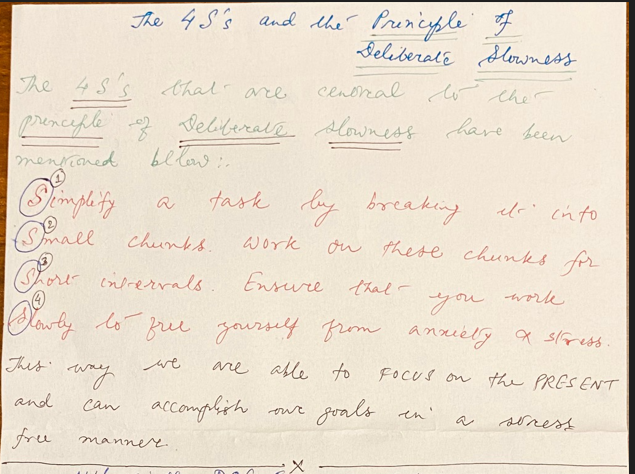 The 4 S's and the Principle of
Deliberate Slowness
The 4 S's that are central to the
principle of Deliberate Slowness have been
mentioned bllow:.
①Simplify a task by breaking it into
②Small chunks. Work on these chunks for
③Short intervals. Ensure that you work
④Slowly to free yourself from anxiety & stress.
This way we are able to FOCUS on the PRESENT
and can accomplish our goals in a stress
free manner.
x